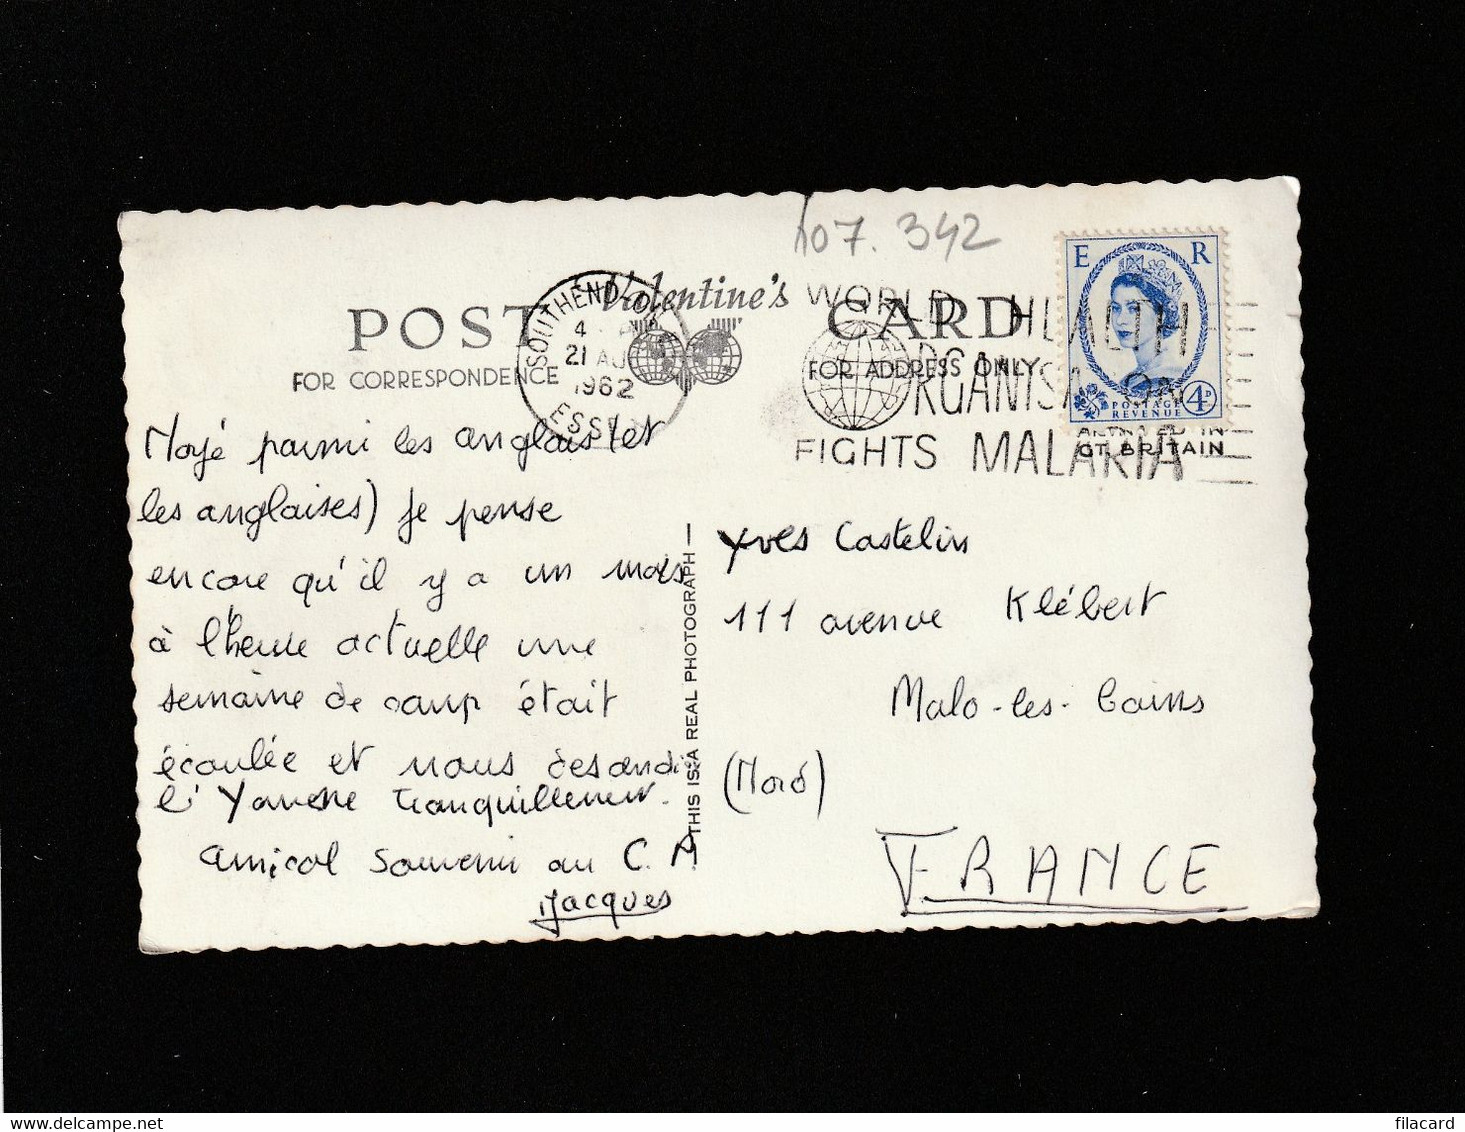 107.342
POST CARD
Valentine's
FOR CORRESPONDENCE
FOR ADDRESS ONLY
SOUTHEND-ON
4
21 AU
1962
ESSEX
WORLD HEALTH
ORGANISATION
FIGHTS MALARIA
E R
POSTAGE
REVENUE
4D
IN
GT. BRITAIN
Noyé parmi les anglais (et
les anglaises) je pense
encore qu'il y a un mois
à l'heure actuelle une
semaine de camp était
écoulée et nous
l' tranquillement.
amical souvenir au C. A
Jacques
THIS IS A REAL PHOTOGRAPH
Yves Castelin
111 avenue Klébert
Malo-les-bains
(Nord)
FRANCE
filacard